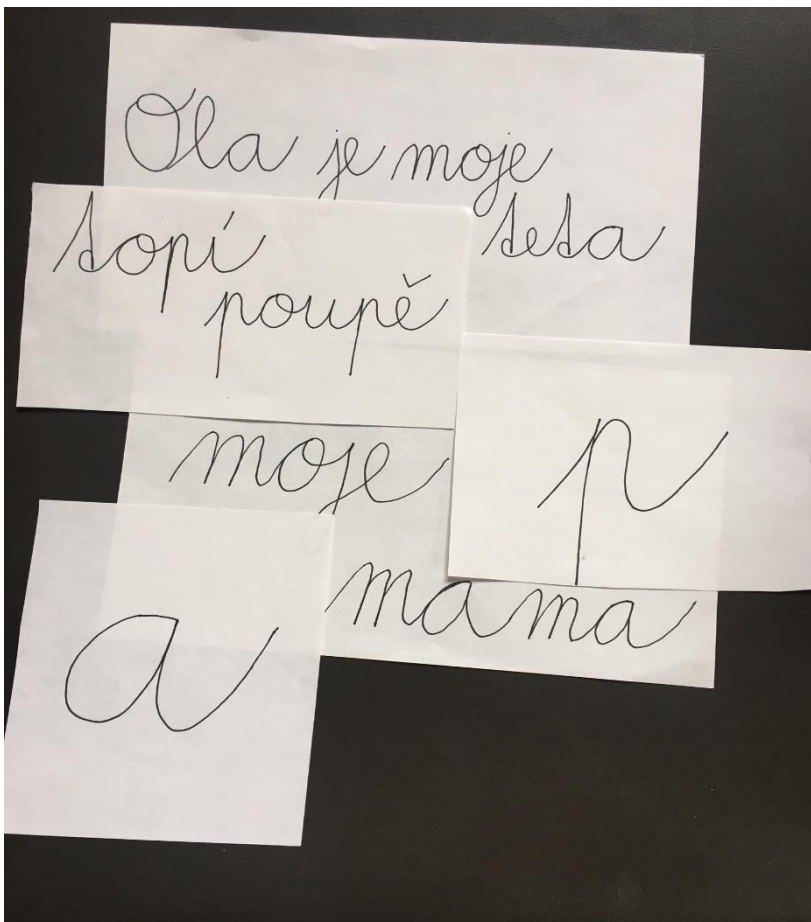 Ola je moje
teta
topí
poupě
moje
p
mama
a